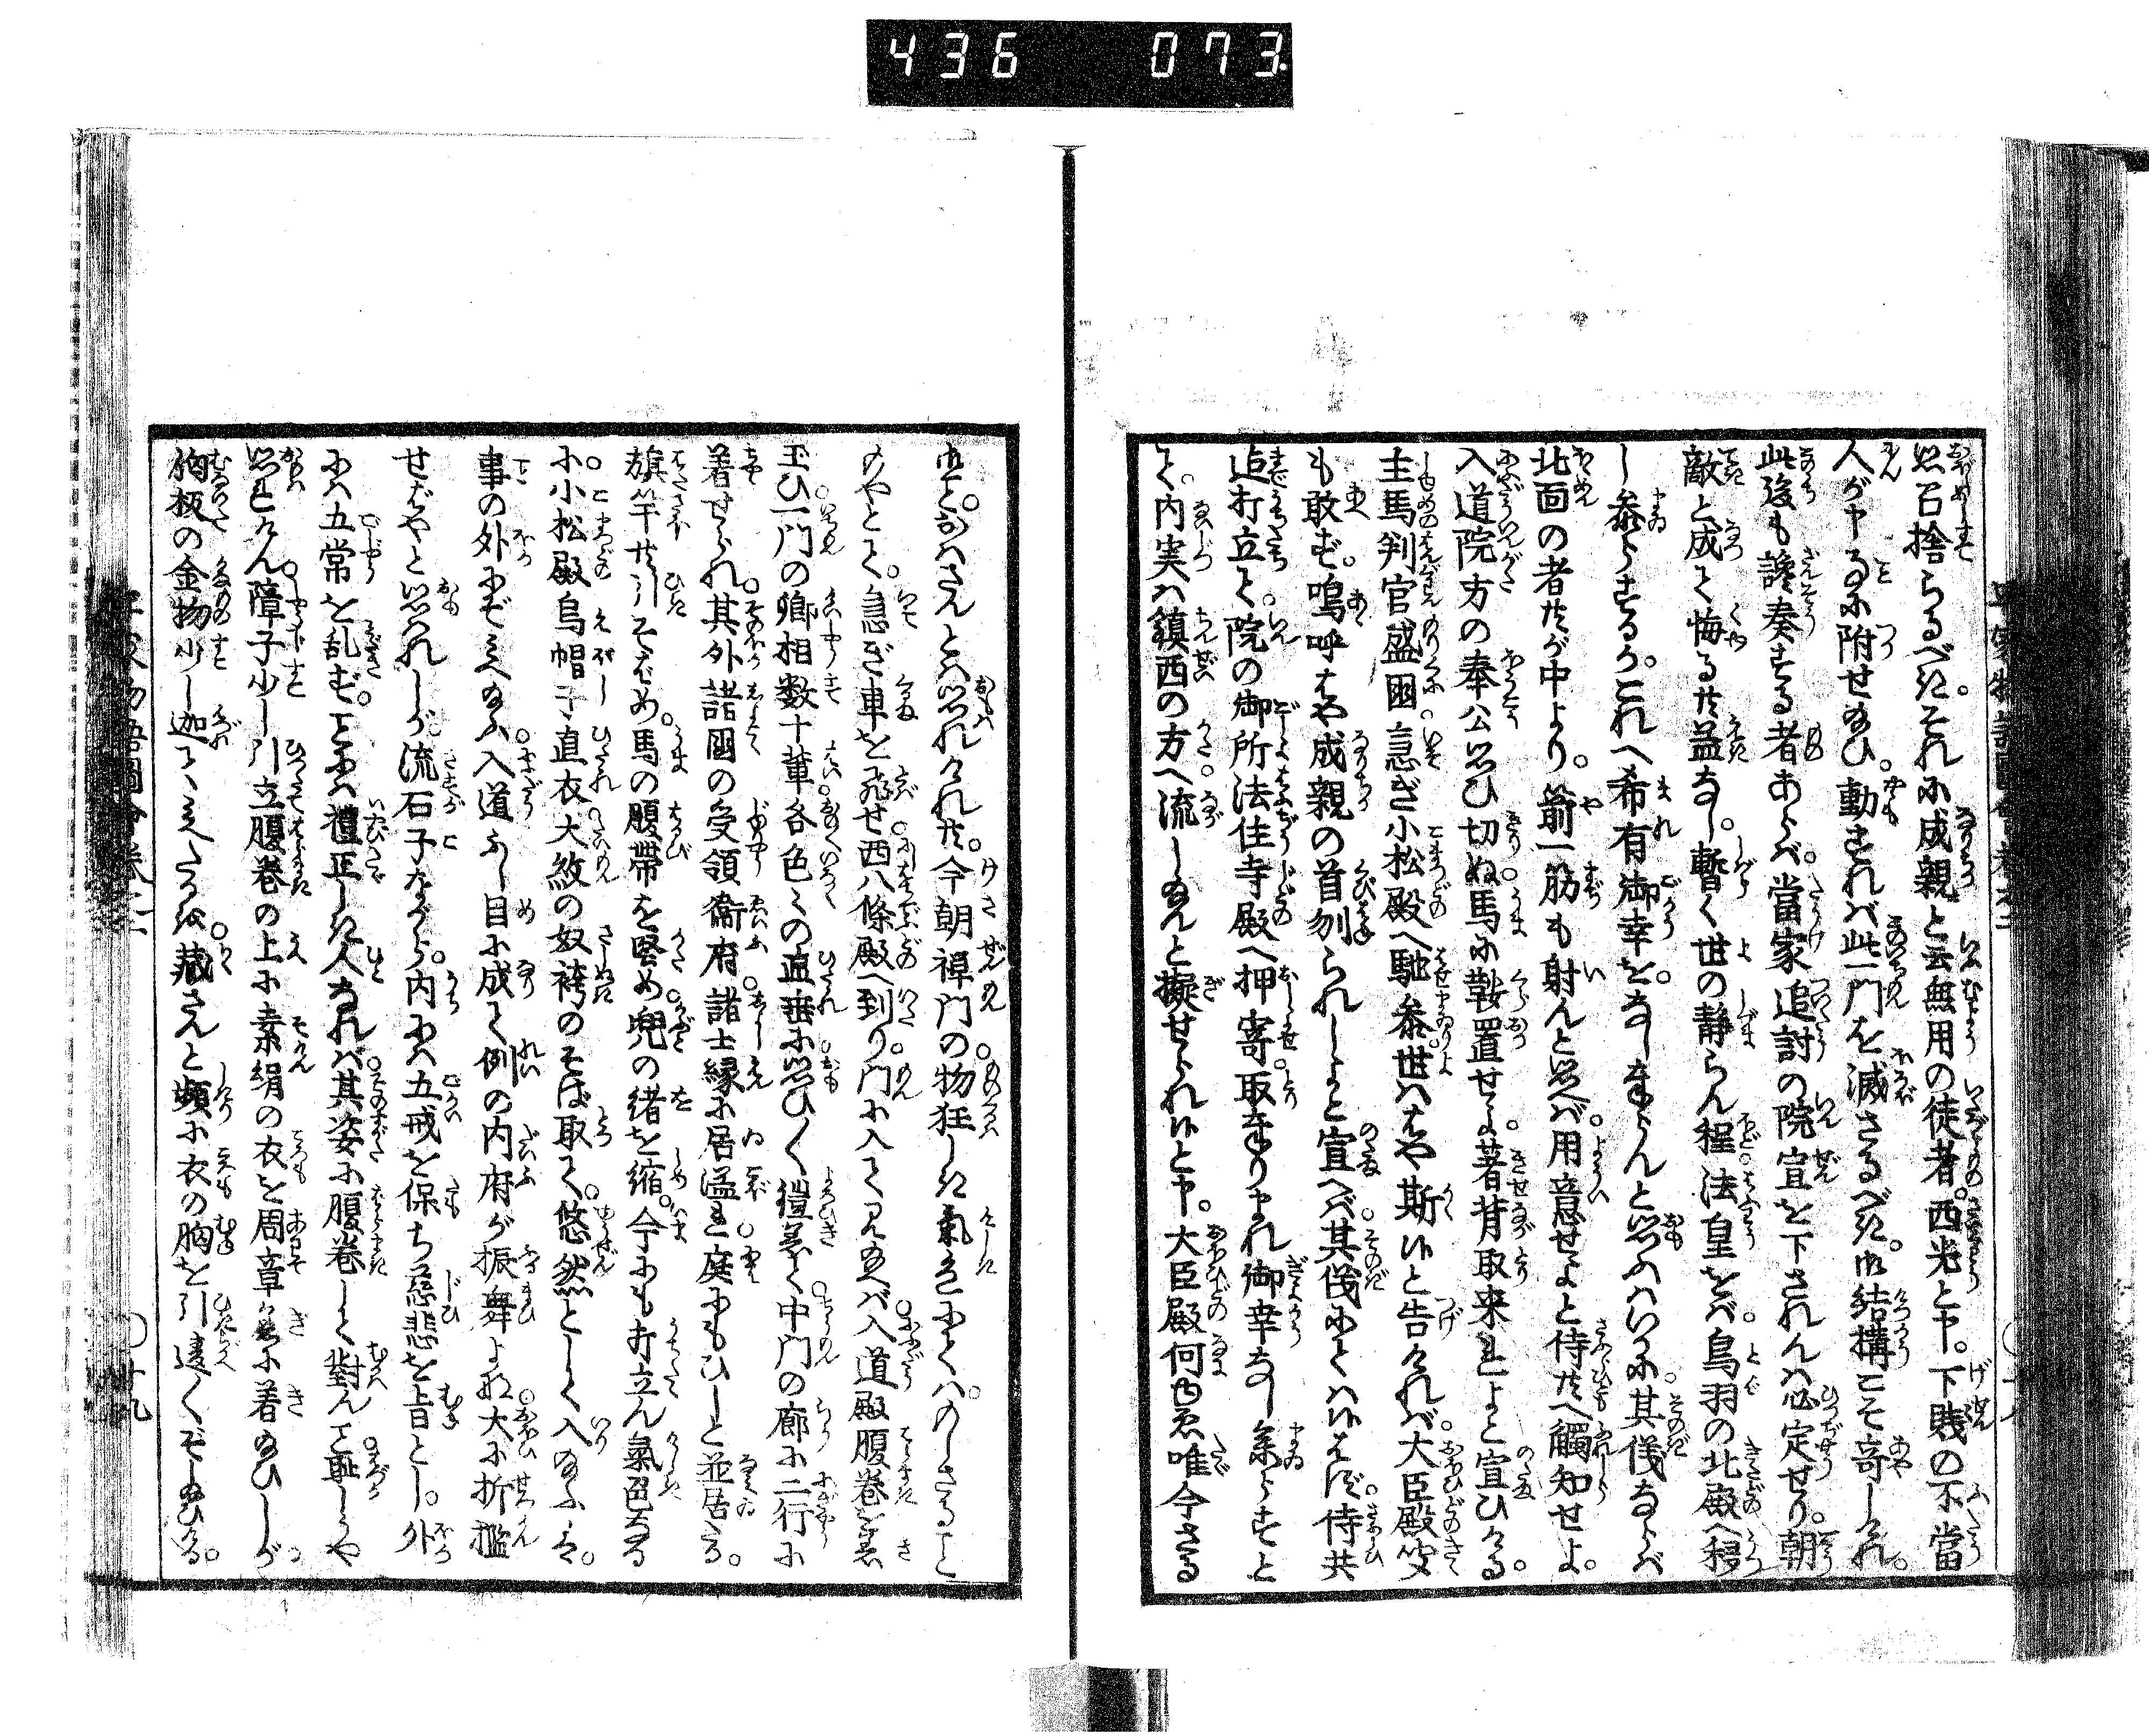 436 073.
思召捨らるべき。それに成親と云無用の徒者。西光と申。下賤の不當
人が申るに附せ給ひ。動すれバ此一門を滅さるべき。御結構こそ奇しけれ。
此後も讒奏する者あらバ。當家追討の院宣を下されんハ必定せり。朝
敵と成て悔る共益なし。暫く世の静らん程法皇をバ。鳥羽の北殿へ移
し参らするか。これへ希有御幸を。なし奉らんと思ふハいかに。其儀ならバ
北面の者共が中より。箭一筋も射んと思へバ。用意せよと侍共へ觸知せよ。
入道院方の奉公思ひ切ぬ。馬に鞍置せよ。著背取来れよと宣ひける。
主馬判官盛國急ぎ小松殿へ馳参。世ハはや斯候と告けれバ。大臣殿聞
も敢ず。嗚呼はや成親の首刎られしよと宣へバ。其儀にてハ候はず。侍共
追打立て。院の御所法住寺殿へ押寄。取奉り申され御幸なし参らすと
て。内実ハ鎮西の方へ流し給んと擬せられ候と申。大臣殿何ゆゑ唯今さる
御事おハさんとハ思れけれ共。今朝禅門の物狂しき氣色にてハ。のしさること
のやとて。急ぎ車を飛せ西八條殿へ到り。門に入て見給へバ入道殿腹巻を著
玉ひ一門の卿相数十輩各色々の直垂に思ひ〳〵鎧著て中門の廊に二行に
著せられ。其外諸國の受領衞府。諸士縁に居溢れ庭にもひしと並居たる。
旗竿共引そばめ。馬の腹帶を堅め。兜の緒を縮。今にも打立ん氣色なる
に。小松殿烏帽子直衣大紋の奴袴のそば取て。悠然として入給ふ。
事の外にぞミへ給ふ。入道ふし目に成て例の内府が振舞よな。大に折檻
せばやと思れしが流石子ながら。内にハ五戒を保ち慈悲を旨とし。外
にハ五常を乱ず。ことにハ禮正しき人なれバ。其姿に腹巻して對んこと恥しうや
思れけん。障子少し引立腹巻の上に素絹の衣を周章著に着給ひしが
胸板の金物少し迦て。ミえたるを。藏さんと頻に衣の胸を引違〳〵ぞし給ひける。
平家物語圖會巻之二
〇廿九